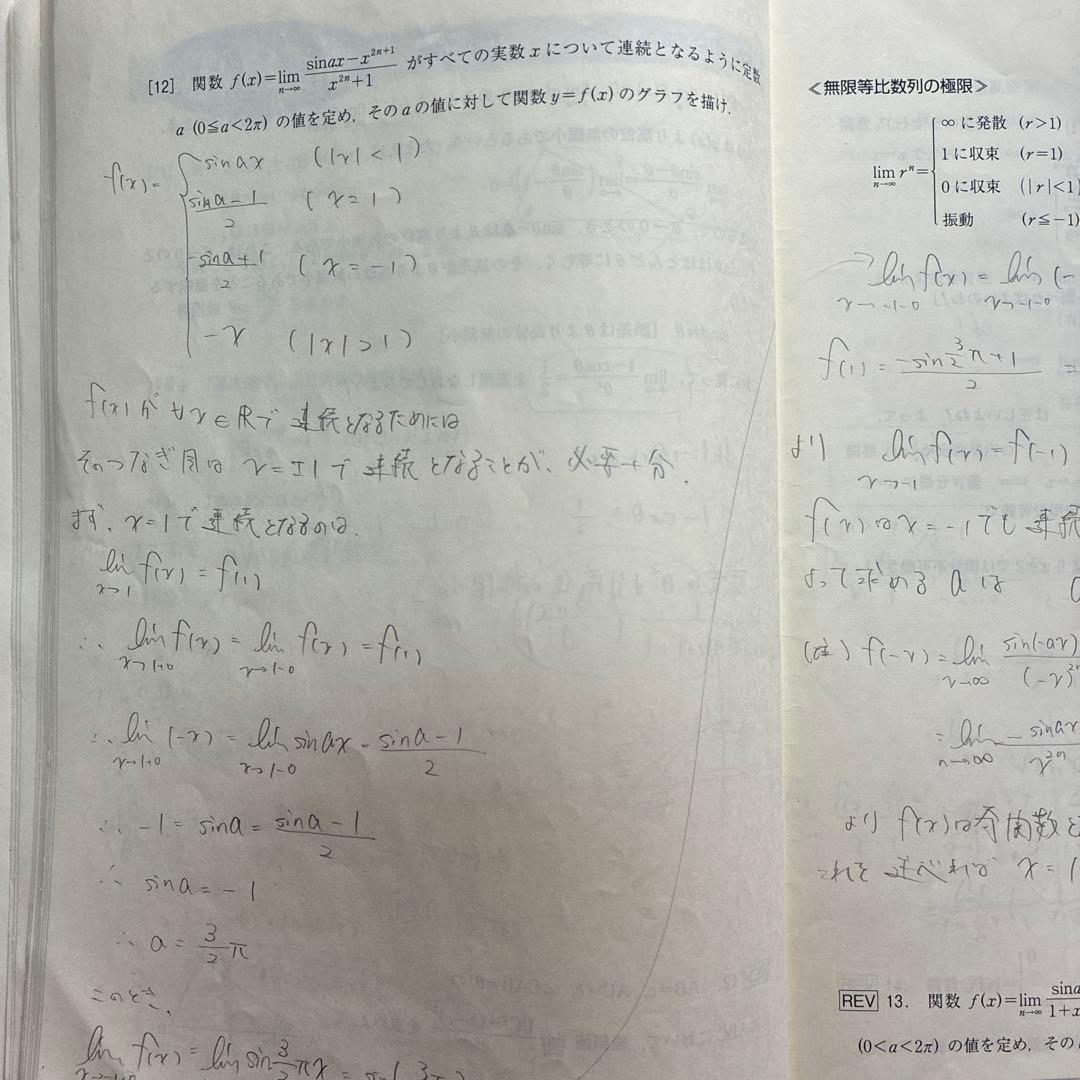 [12] 関数 f(x)=lim_{n→∞} (sinax−x^{2n+1})/(x^{2n}+1) がすべての実数 x について連続となるように定数
a (0≦a<2π) の値を定め，その a の値に対して関数 y=f(x) のグラフを描け．
f(x) = { sin ax (|x| < 1)
(sin a − 1)/2 (x = 1)
(−sin a + 1)/2 (x = −1)
−x (|x| > 1)
f(x) が ∀x ∈ R で 連続となるためには
そのつなぎ目は x = ±1 で 連続 となることが、必要十分.
まず、x=1 で連続となるのは、
lim_{x→1} f(x) = f(1)
∴ lim_{x→1+0} f(x) = lim_{x→1−0} f(x) = f(1)
∴ lim_{x→1+0} (−x) = lim_{x→1−0} sin ax = (sin a − 1)/2
∴ −1 = sin a = (sin a − 1)/2
∴ sin a = −1
∴ a = 3/2 π
このとき、
lim f(x) = lim sin 3/2 πx = sin(
≪無限等比数列の極限≫
lim_{n→∞} r^n = { ∞ に発散 (r>1)
1 に収束 (r=1)
0 に収束 (|r|<1)
振動 (r≦−1)
lim_{x→−1−0} f(x) = lim_{x→−1−0} (−
f(1) = (−sin 3/2 π + 1)/2 =
より lim_{x→−1} f(x) = f(−1)
f(x) は x = −1 でも 連続
よって求める a は
(注) f(−x) = lim_{x→∞} sin(−ax)/(−x)^{2n}
= lim_{n→∞} −sin ax/x^{2n}
より f(x) は奇関数と
これを 述べれば x = 1
REV 13. 関数 f(x)=lim_{n→∞} sina/1+x
(0<a<2π) の値を定め，その